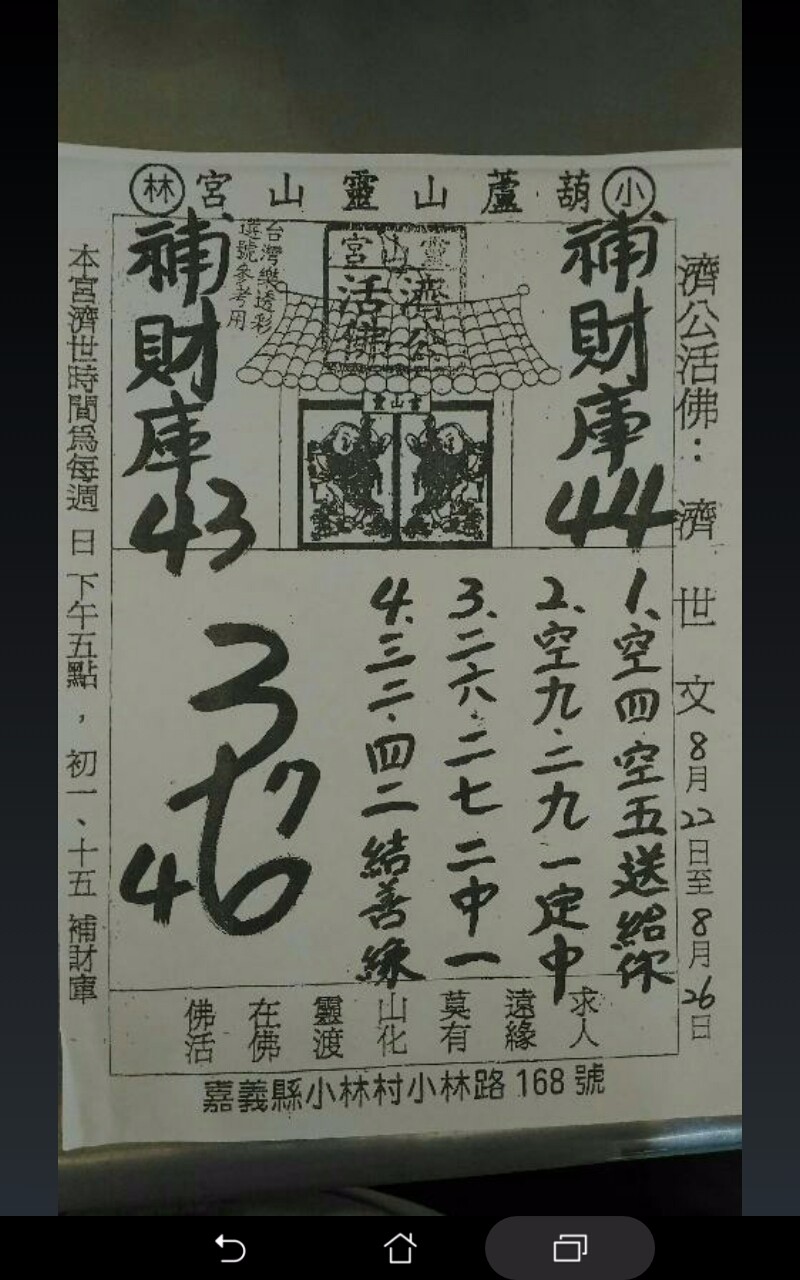 小葫蘆山靈山宮林
濟公活佛：濟世文8月22日至8月26日
補財庫44
靈山宮
濟公
活佛
台灣樂透彩
選號參考用
補財庫43
靈山宮
1、空四空五送給你
2、空九·二九一定中
3、二六·二七二中一
4、三二·四二結善緣
3
46
求人
遠緣
莫有
山化
靈渡
在佛
佛活
本宮濟世時間為每週日下午五點，初一、十五補財庫
嘉義縣小林村小林路168號